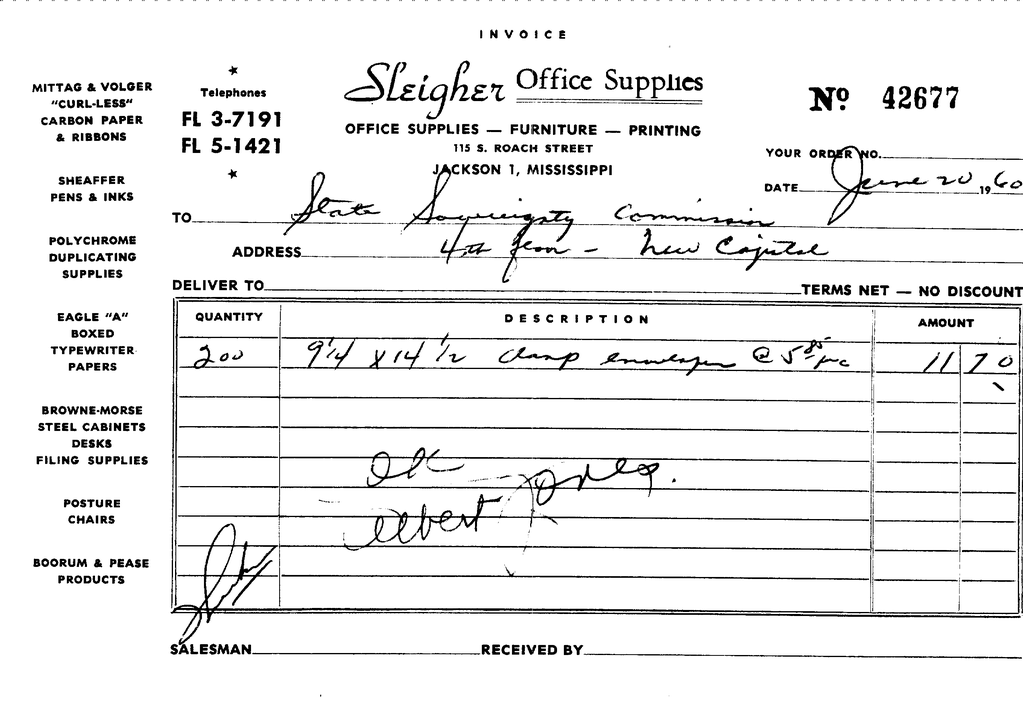 INVOICE
MITTAG & VOLGER
"CURL-LESS"
CARBON PAPER
& RIBBONS
SHEAFFER
PENS & INKS
POLYCHROME
DUPLICATING
SUPPLIES
EAGLE "A"
BOXED
TYPEWRITER
PAPERS
BROWNE-MORSE
STEEL CABINETS
DESKS
FILING SUPPLIES
POSTURE
CHAIRS
BOORUM & PEASE
PRODUCTS
Telephones
FL 3-7191
FL 5-1421
Sleigher Office Supplies
OFFICE SUPPLIES — FURNITURE — PRINTING
115 S. ROACH STREET
JACKSON 1, MISSISSIPPI
Nº 42677
YOUR ORDER NO.
DATE June 20, 1960
TO State Sovereignty Commission
ADDRESS 4th floor - New Capitol
DELIVER TO TERMS NET — NO DISCOUNT
QUANTITY DESCRIPTION AMOUNT
200 9 1/4 x 14 1/2 clasp envelopes @ 5 85 per c 11 70
OK
Albert Jones.
SALESMAN RECEIVED BY